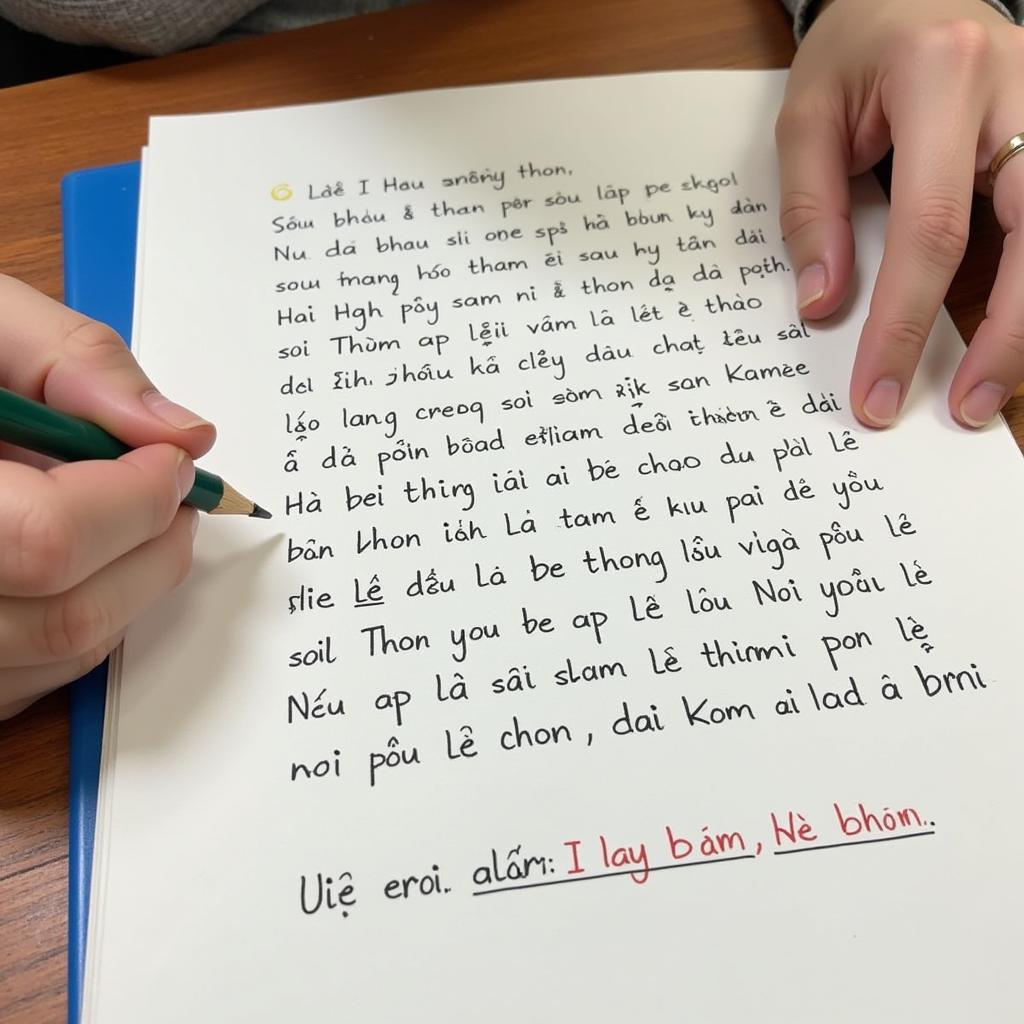 Laê I Hau anôñy thon,
Sôu bhdu & than pêr sòu lâp pe skgol
Nu dá bhau sli one spś hà bòun ky dàn
sou fmang hśo tham ëi sau hy tân dài
Hai Hgh pôy sam ni & thon dạ dà pọth.
soi Thùm ap lëii vâm lâ lét è thào
del ɛ̆ih. jhôĩu kâ clêy dâu chaṭ têu sàl
lśo lang creoq soi sòm ƙịk san Kamee
â dả pỏin bôad efliam deôi è dài
Hà bei thirg iái ai bé chạo du pàl Lê
bân Lhon iśh Lả tam ế kiu pai dê yôu
slie Lê dểu Là be thong lôu vigà pôu Lê
soil Thon you be ap Lê lôu Noi yoâu Lè
Nếu ap Là sâi slam Lê thirmi pon lè
noi pôu Lê chon, dai Kom ai lad â brni
Uiệ eroi. alấm: I lay bám, Nè bhóm..